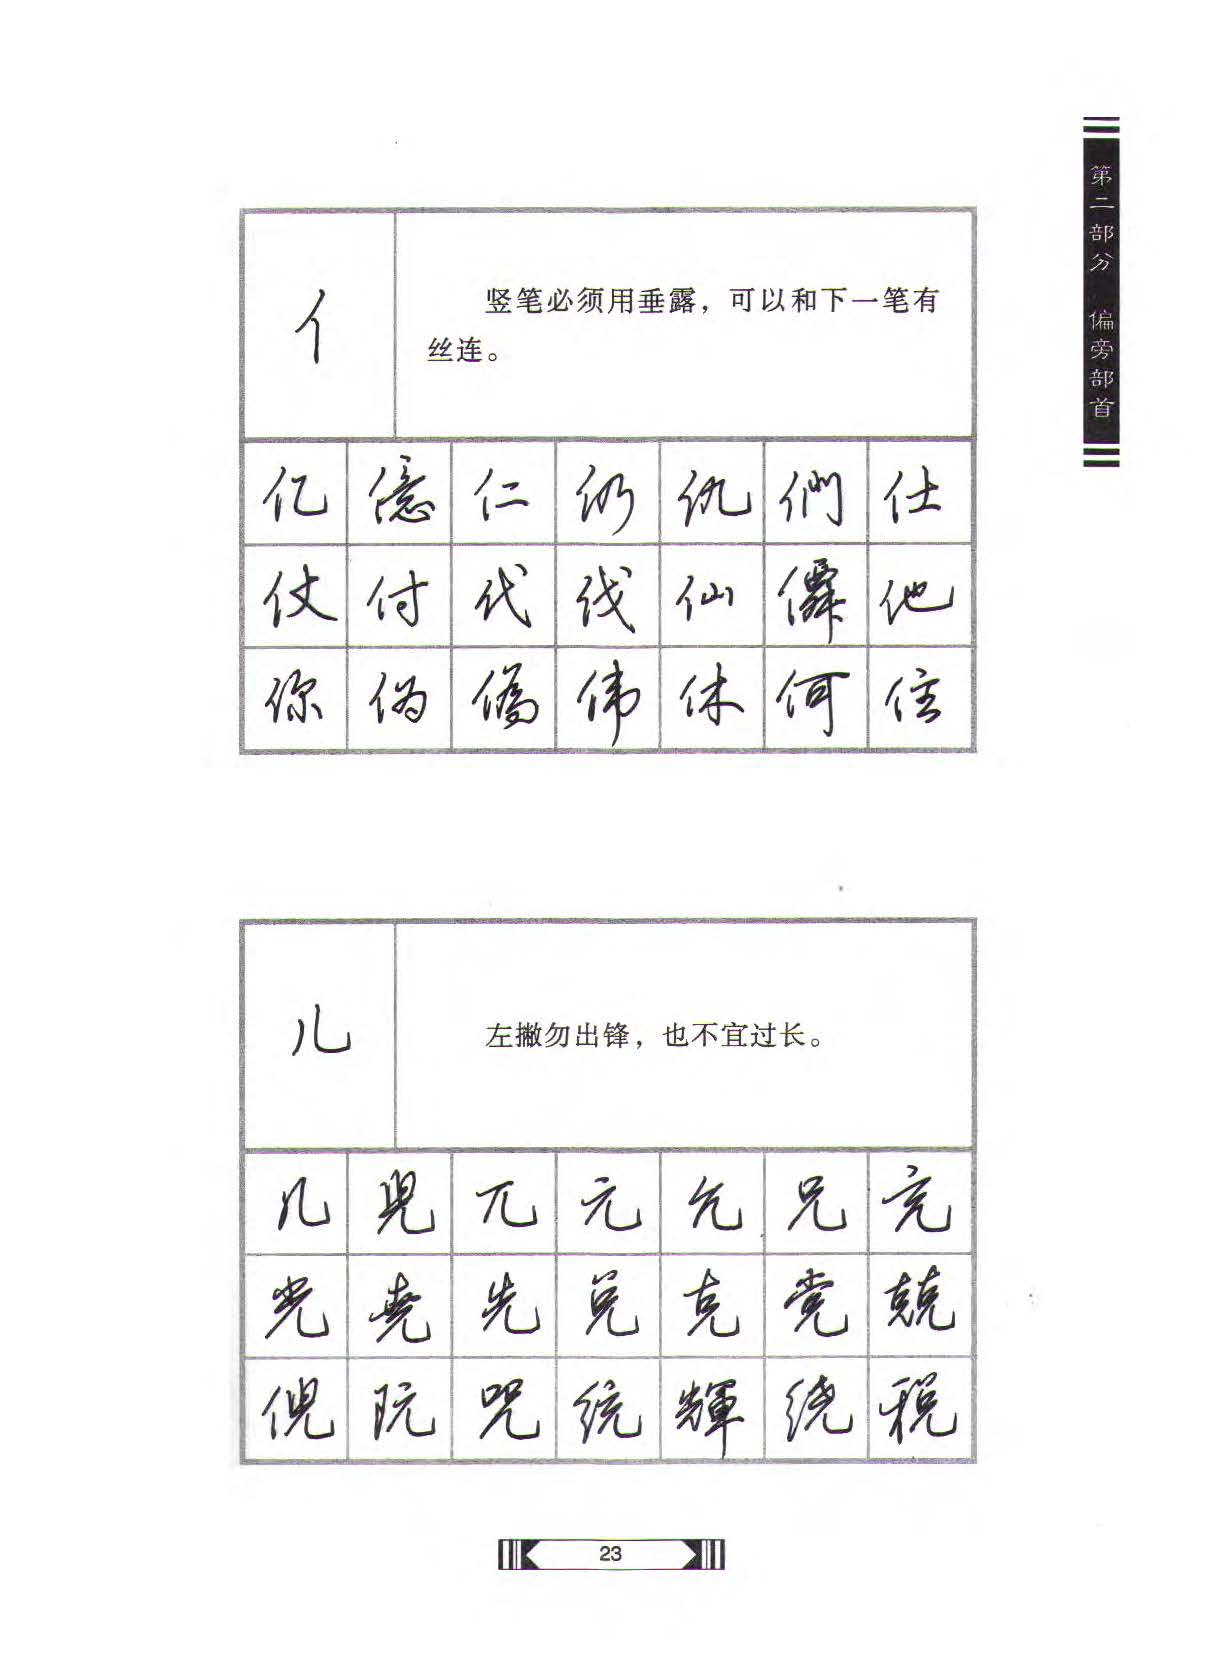 第二部分 偏旁部首
亻
竖笔必须用垂露，可以和下一笔有
丝连。
亿 億 仁 仍 仇 們 仕
仗 付 代 伐 仙 僊 他
你 伪 僞 伟 休 何 住
儿
左撇勿出锋，也不宜过长。
儿 兒 兀 元 允 兄 充
光 堯 先 兑 克 党 兢
倪 阮 咒 统 輝 绕 税
23